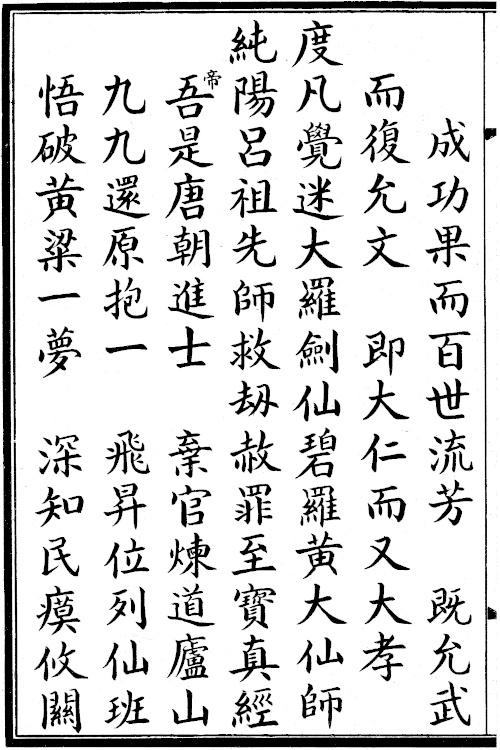 成功果而百世流芳　既允武
而復允文　即大仁而又大孝
度凡覺迷大羅劍仙碧羅黃大仙師
純陽呂祖先師救劫赦罪至寶真經
吾帝是唐朝進士　棄官煉道廬山
九九還原抱一　飛昇位列仙班
悟破黃粱一夢　深知民瘼攸關